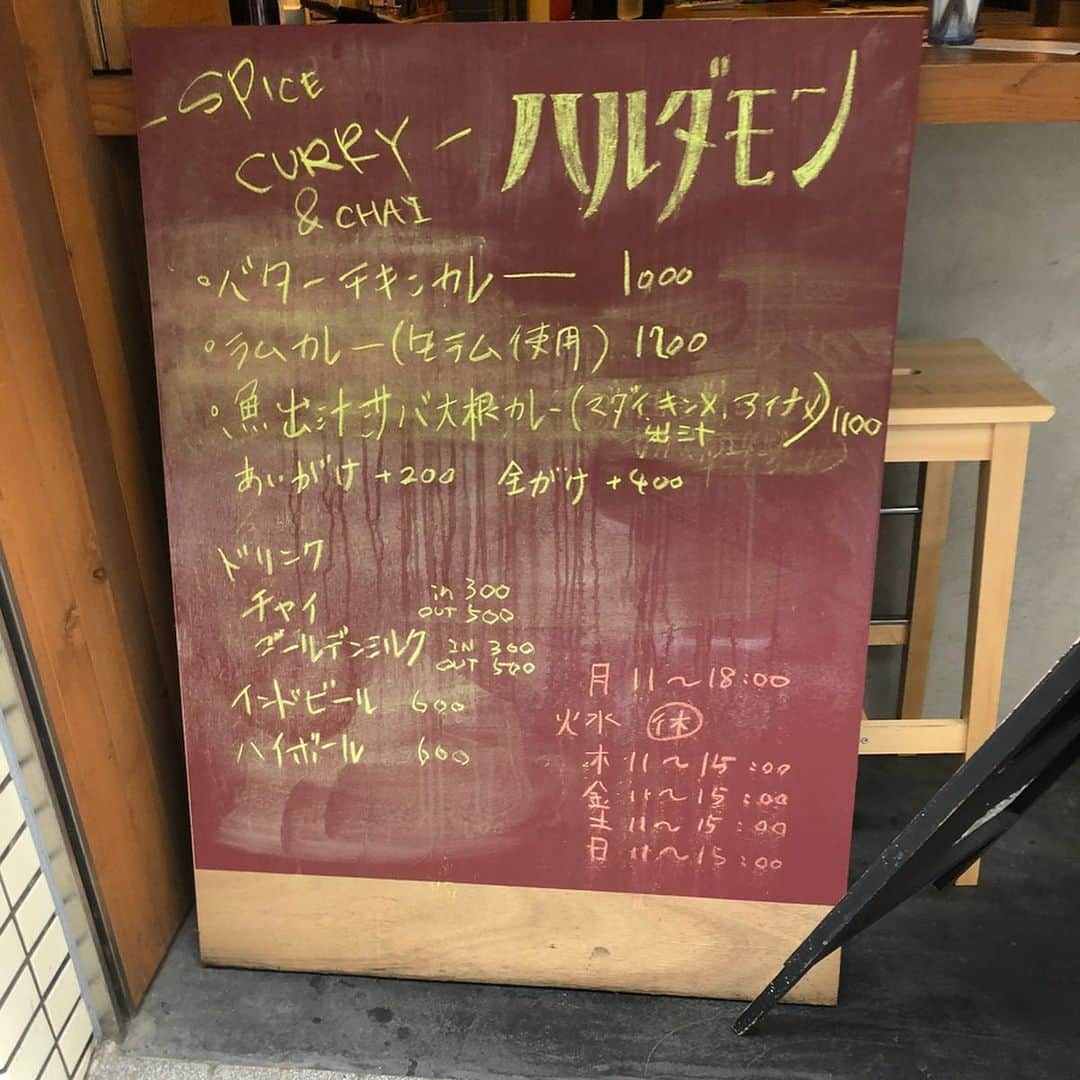 SPICE
CURRY
& CHAI
ハルダモン
・バターチキンカレー 1000
・ラムカレー(生ラム使用) 1200
・魚出汁サバ大根カレー(マダイ、キンメ、アイナメ出汁) 1100
あいがけ +200 全がけ +400
ドリンク
チャイ in 300
OUT 500
ゴールデンミルク IN 300
OUT 500
インドビール 600
ハイボール 600
月 11〜18:00
火水 休
木 11〜15:00
金 11〜15:00
土 11〜15:00
日 11〜15:00